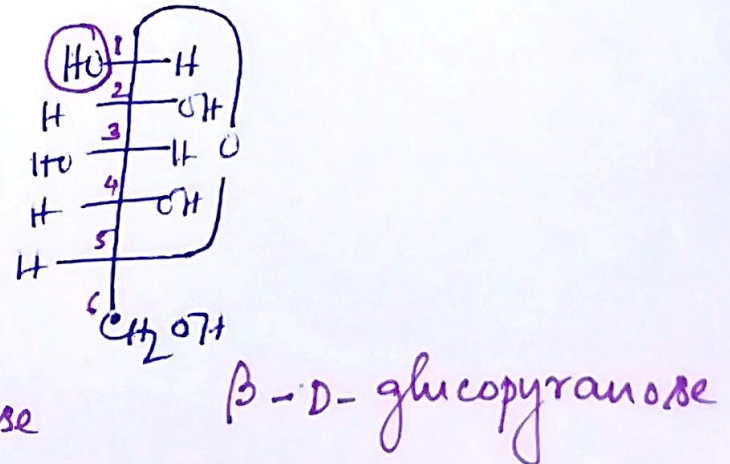 HO 1 H
H 2 OH
HO 3 H O
H 4 OH
H 5
6 CH2OH
β-D-glucopyranose
se